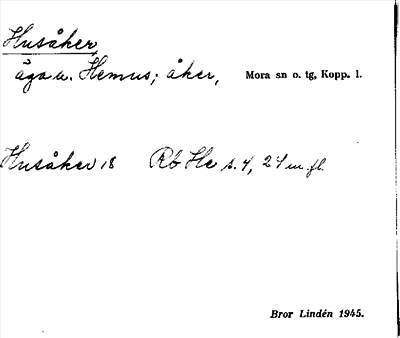 Husåker,
ägo u. Hemus; åker, Mora sn o. tg, Kopp. l.
Husåker 18 Rb He s. 4, 24 m. fl.
Bror Lindén 1945.